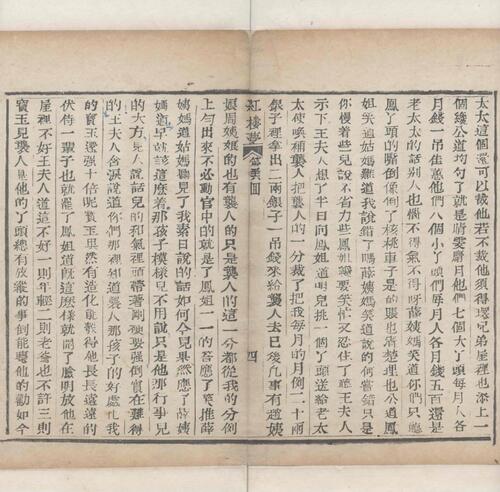 太太這個還可以裁他若不裁他須得環兄弟屋裡也添上一
個纔公道均勻了就是晴雯麝月他們七個大丫頭每月人各
月錢一吊佳蕙他們八個小丫頭們每月人各月錢五百還是
老太太的話別人也惱不得氣不得呀薛姨媽笑道你們只聽
鳳丫頭的嘴倒像倒了核桃車子是的賬也清楚理也公道鳳
姐笑道姑媽難道我說錯了嗎薛姨媽笑道說的何嘗錯只是
你慢着些兒說不省力些鳳姐纔要笑忙又忍住了聽王夫人
示下王夫人想了半日向鳳姐道明兒挑一個丫頭送給老太
太使喚補襲人把襲人的一分裁了把我每月的月例二十兩
銀子裡拿出二兩銀子一吊錢來給襲人去已後凡事有趙姨
紅樓夢 回 四
娘周姨娘的也有襲人的只是襲人的這一分都從我的分例
上勻出來不必動官中的就是了鳳姐一一的答應了笑推薛
姨媽道姑媽聽見了我素日說的話如何今兒果然應了薛姨
媽道早就該這麽着那孩子模樣兒不用說只是他那行事兒
的大方見人說話兒的和氣裡頭帶着剛硬要強倒實在難得
的王夫人含淚說道你們那裡知道襲人那孩子的好處比我
的寶玉還強十倍呢寶玉果然有造化能彀得他長長遠遠的
伏侍一輩子也就罷了鳳姐道既這麽樣就開了臉明放他在
屋裡不好王夫人道這不好一則年輕二則老爺也不許三則
寶玉見襲人是他的丫頭總有放縱的事倒能聽他的勸如今